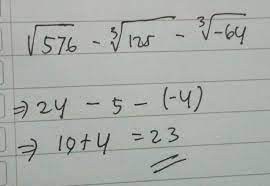 √576 - ∛125 - ∛-64
⇒ 24 - 5 - (-4)
⇒ 19 + 4 = 23